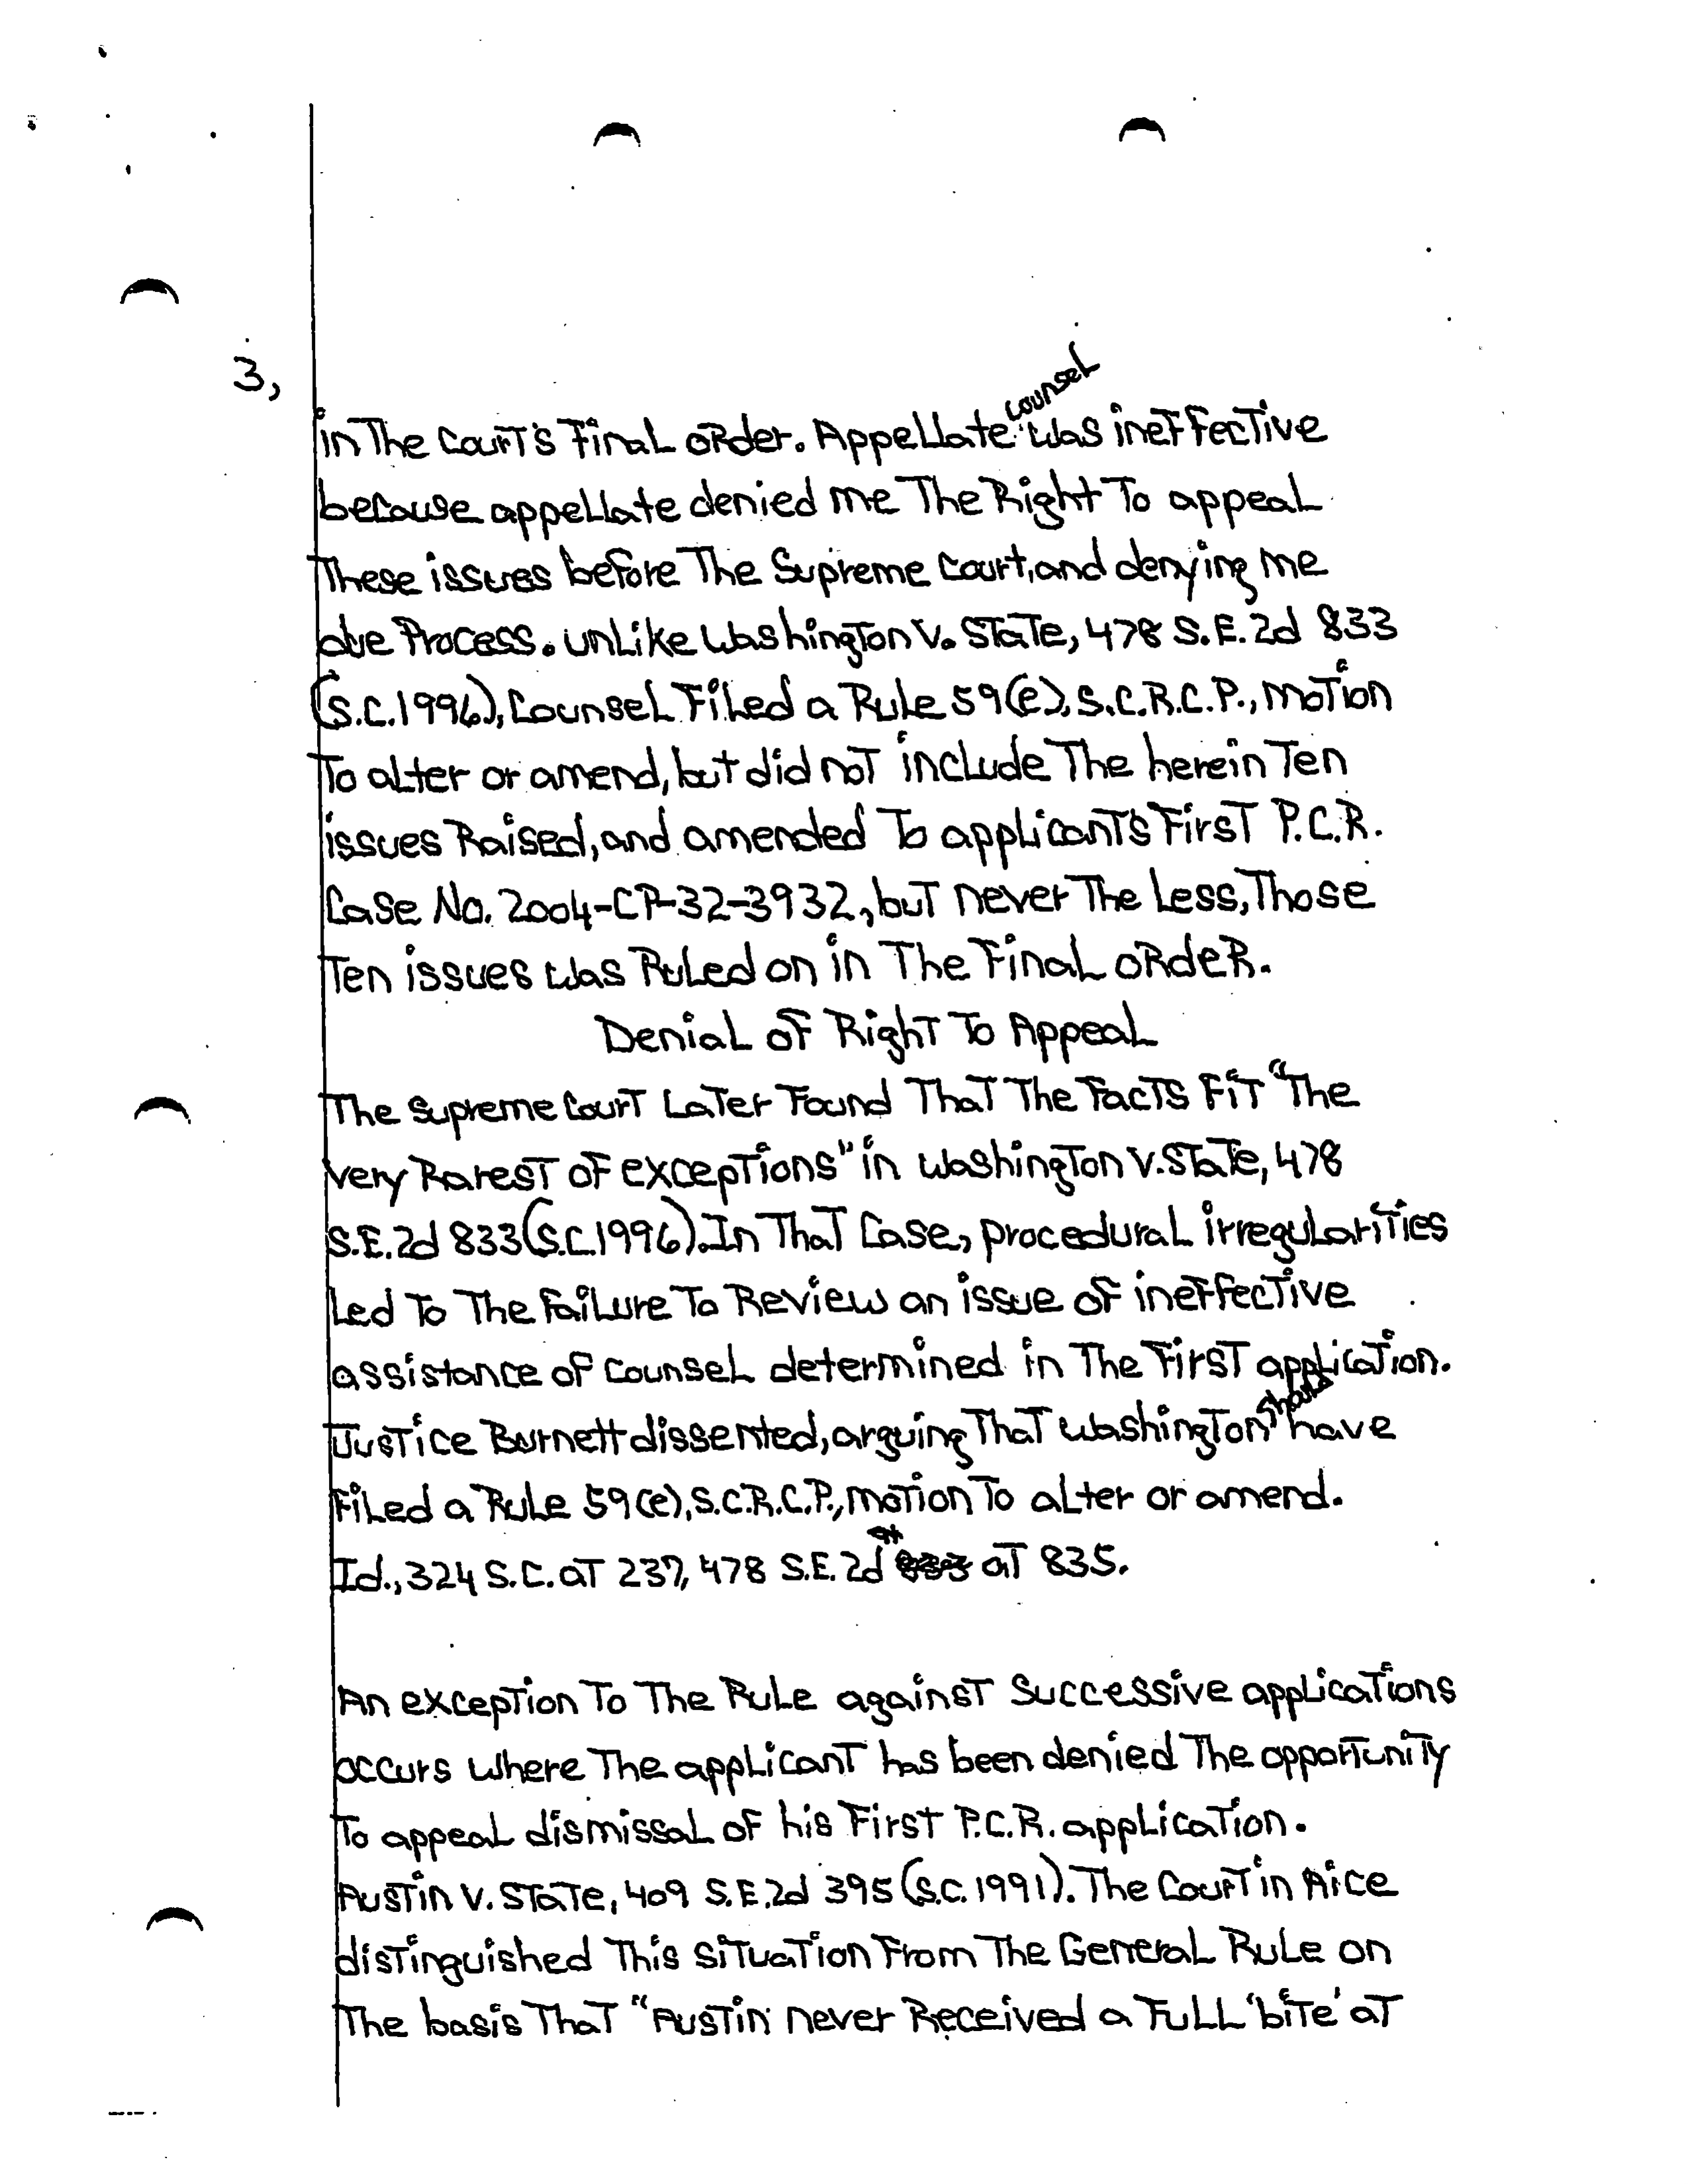 3,
in The Court's Final order. Appellate counsel was ineffective
because appellate denied me The Right To appeal
These issues before The Supreme Court, and denying me
due Process. unlike Washington v. State, 478 S.E.2d 833
(S.C.1996), Counsel Filed a Rule 59(e), S.C.R.C.P., motion
To alter or amend, but did not include The herein Ten
issues Raised, and amended To applicant's First P.C.R.
Case No. 2004-CP-32-3932, but never The Less, Those
Ten issues was Ruled on in The Final order.
Denial of Right To Appeal
The Supreme Court Later Found That The Facts Fit "The
very Rarest of exceptions" in Washington v. State, 478
S.E.2d 833 (S.C.1996). In That Case, procedural irregularities
Led To The Failure To Review an issue of ineffective
assistance of Counsel determined in The First application.
Justice Burnett dissented, arguing That Washington have
Filed a Rule 59(e), S.C.R.C.P., motion To alter or amend.
Id., 324 S.C. at 237, 478 S.E.2d at 835.
An exception To The Rule against Successive applications
occurs where The applicant has been denied The opportunity
To appeal dismissal of his First P.C.R. application.
Austin v. State, 409 S.E.2d 395 (S.C. 1991). The Court in Aice
distinguished This situation From The General Rule on
The basis That "Austin never Received a Full 'bite' at